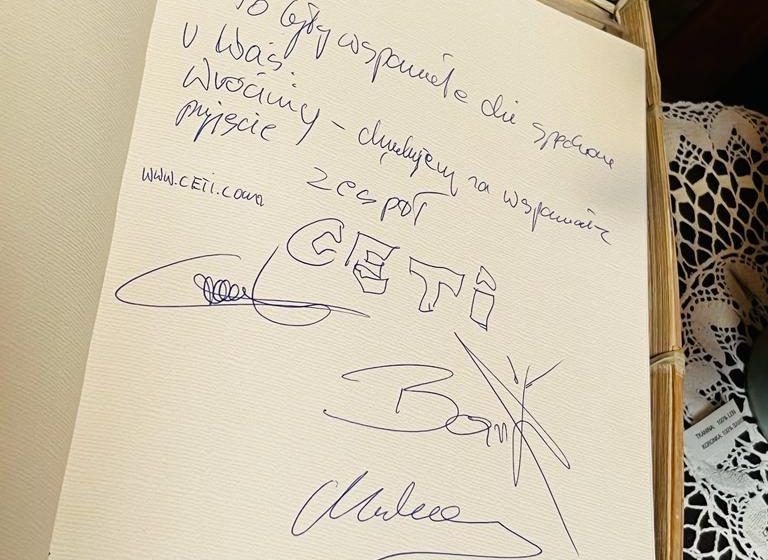 To były wspaniałe dni spędzone
u Was!
Wrócimy - dziękujemy za wspaniałe
przyjęcie
zespół
www.CETI.com
CETI
TKANINA 100% LEN
KORONKA 100% BAW